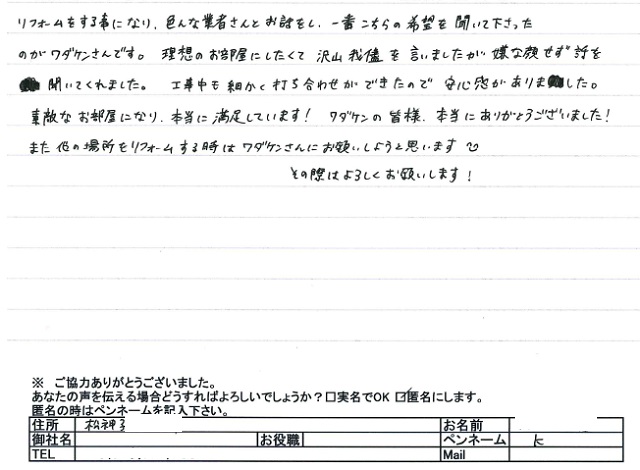 リフォームをする事になり、色んな業者さんとお話をし、一番こちらの希望を聞いて下さった
のがワダケンさんです。理想のお部屋にしたくて沢山我儘を言いましたが嫌な顔せず話を
聞いてくれました。工事中も細かく打ち合わせができたので安心感がありました。
素敵なお部屋になり、本当に満足しています！ワダケンの皆様、本当にありがとうございました！
また他の場所をリフォームする時はワダケンさんにお願いしようと思います
その際はよろしくお願いします！
※ ご協力ありがとうございました。
あなたの声を伝える場合どうすればよろしいでしょうか？□実名でOK ☑匿名にします。
匿名の時はペンネームを記入下さい。
住所 松神子 お名前
御社名 お役職 ペンネーム K
TEL Mail